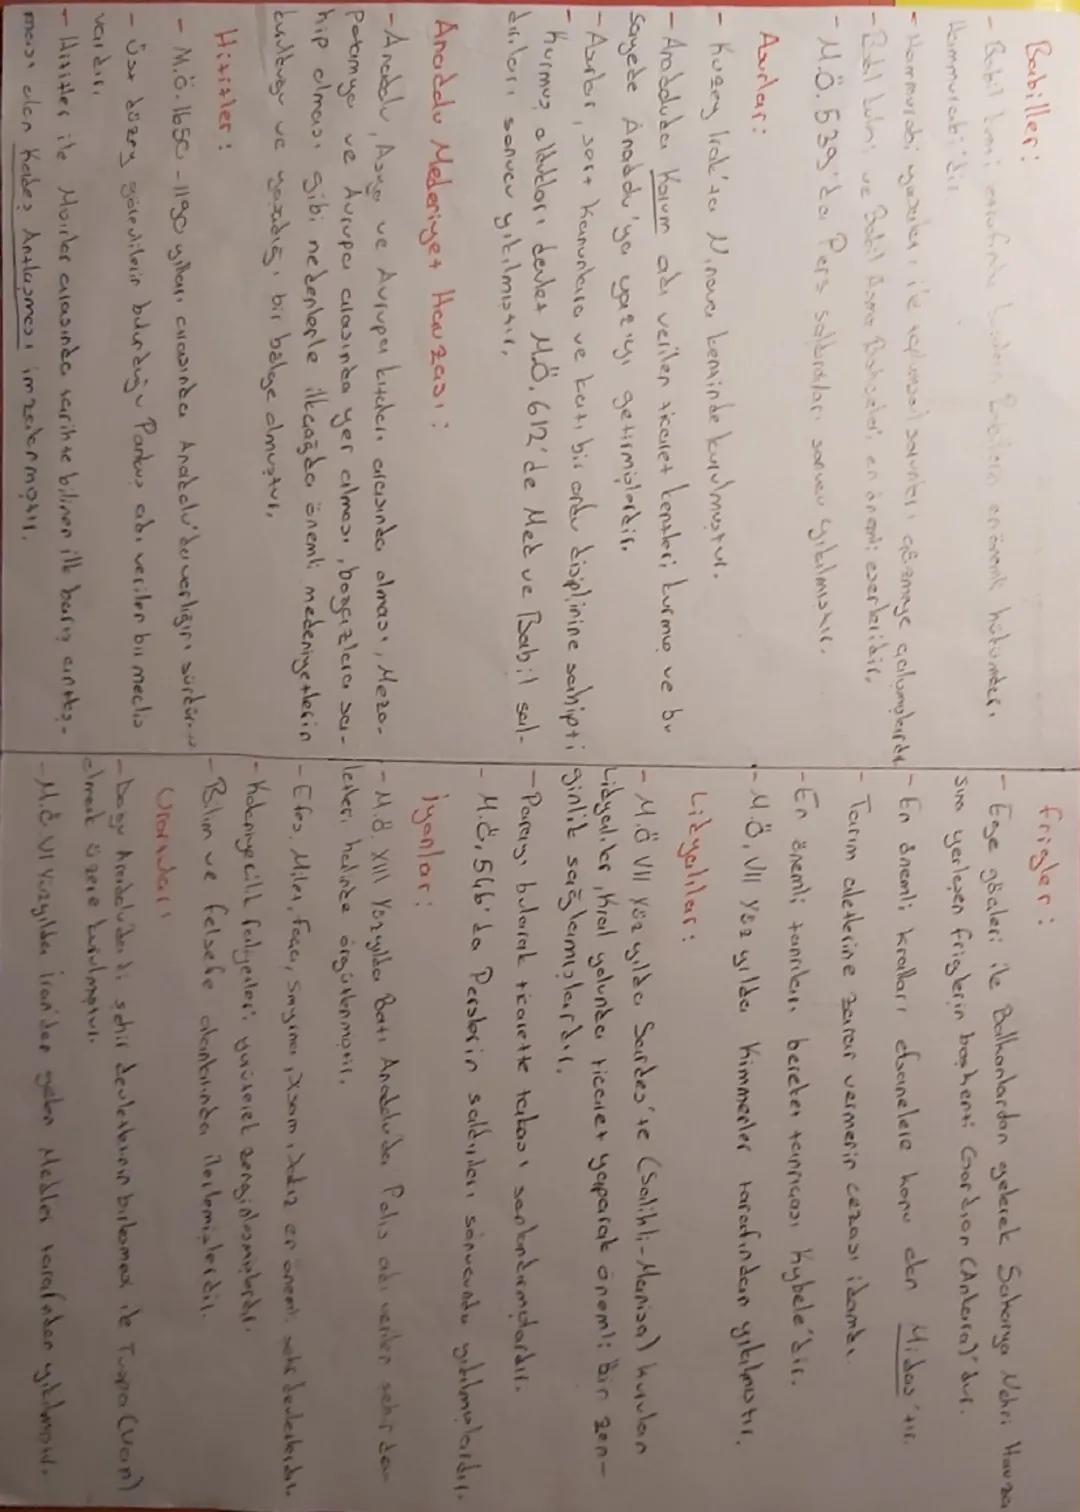 Babiller:
- Babil Kulesi
Hammurabi'dir.
- Hammurabi yasaları ile toplumsal sorunları çözmeye çalışmışlardır
- Babil Kulesi ve Babil Asma Bahçeleri en önemli eserleridir.
- M.Ö. 539'da Pers saldırıları sonucu yıkılmıştır.
Asurlar:
- Kuzey Irak'ta Ninova kentinde kurulmuştur.
- Anadoluda Karum adı verilen ticaret kentleri kurmuş ve bu
sayede Anadolu'ya yazıyı getirmişlerdir.
- Asurlar, sert kanunlara ve katı bir ordu disiplinine sahipti
- Kurmuş oldukları devlet M.Ö. 612'de Med ve Babil sal-
dırıları sonucu yıkılmıştır.
Anadolu Medeniyet Havzası:
- Anadolu, Asya ve Avrupa kıtaları arasında olması, Mezo-
potamya ve Avrupa arasında yer alması, boğazlara sa-
hip olması gibi nedenlerle ilkçağda önemli medeniyetlerin
kurulduğu ve yaşadığı bir bölge olmuştur.
Hititler:
- M.Ö. 1650 - 1190 yılları arasında Anadolu'da varlığını sürdür
- Üst düzey görevlilerin bulunduğu Pankuş adı verilen bir meclis
vardır.
- Hititler ile Mısırlar arasında tarihte bilinen ilk barış antlaş-
ması olan Kadeş Antlaşması imzalanmıştır.
Frigler:
- Ege göçleri ile Balkanlardan gelerek Sakarya Nehri Havza
sına yerleşen Friglerin başkenti Gordion (Ankara)'dur.
- En önemli kralları efsanelere konu olan Midas'tır.
- Tarım aletlerine zarar vermenin cezası idamdı.
- En önemli tanrıları bereket tanrıçası Kybele'dir.
- M.Ö. VII Yüzyılda Kimmerler tarafından yıkılmıştır.
Lidyalılar:
- M.Ö VII Yüzyılda Sardes'te (Salihli-Manisa) kurulan
Lidyalılar, Kral yolunda ticaret yaparak önemli bir zen-
ginlik sağlamışlardır.
- Parayı bularak ticarette takası sonlandırmışlardır.
- M.Ö. 546'da Perslerin saldırıları sonucunda yıkılmışlardır.
İyonlar:
- M.Ö. XII Yüzyılda Batı Anadoluda Polis adı verilen şehir dev-
letleri halinde örgütlenmiştir.
- Efes, Milet, Foça, Smyrna, en önemli şehir devletleridir.
- Kolonycilik faliyetleri yürüterek zenginleşmişlerdir.
- Bilim ve felsefe alanlarında ilerlemişlerdir.
Urartular:
- Doğu Anadolu'daki şehir devletlerinin birleşmesi ile Tuşpa (Van)
olmak üzere kurulmuştur.
- M.Ö. VI Yüzyılda İran'dan gelen Medler tarafından yıkılmıştır.